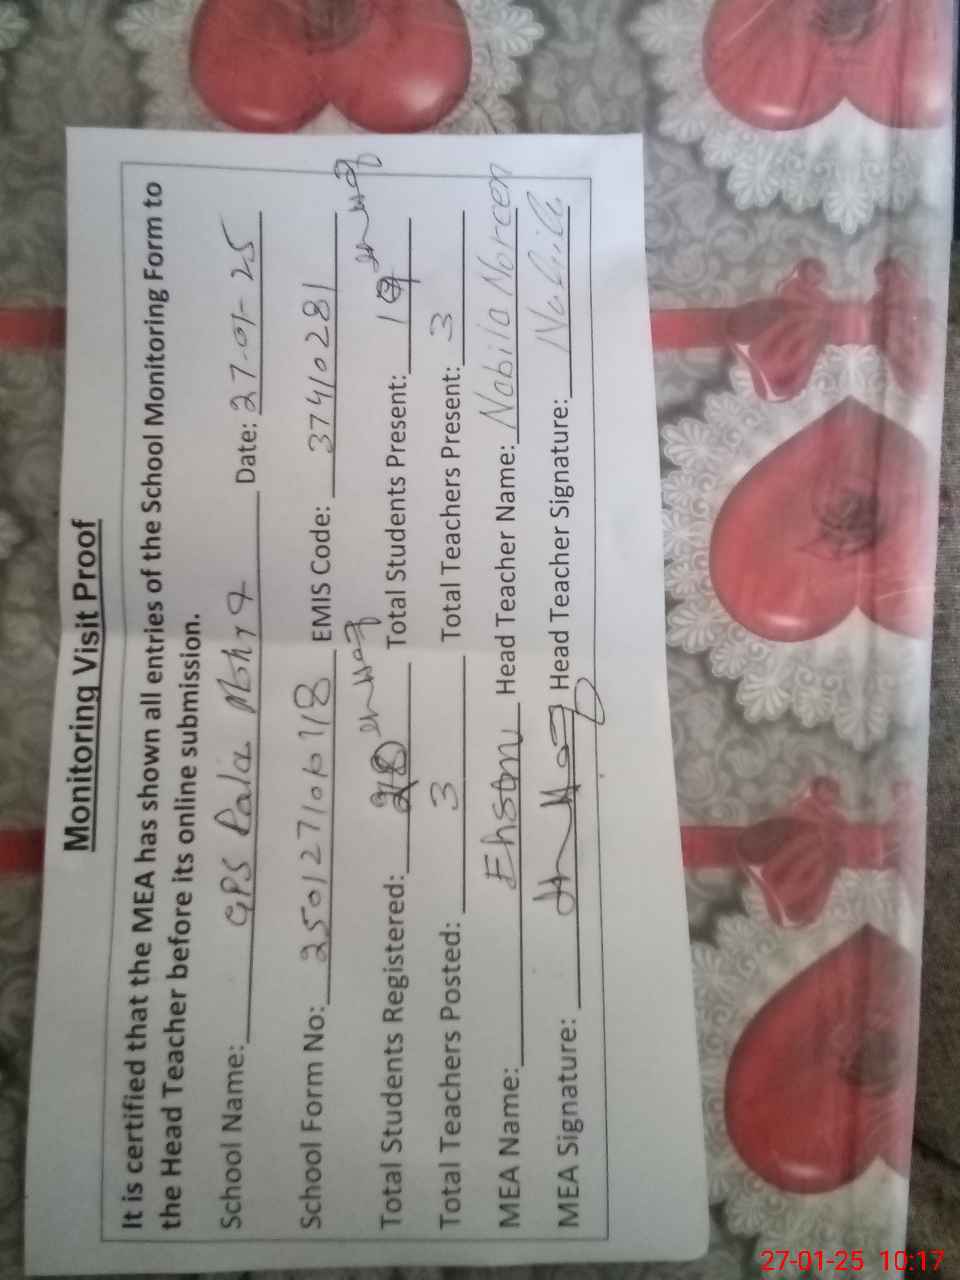 Monitoring Visit Proof
It is certified that the MEA has shown all entries of the School Monitoring Form to
the Head Teacher before its online submission.
School Name: GPS Date: 27-01-25
School Form No: EMIS Code: 37410281
Total Students Registered: Total Students Present:
Total Teachers Posted: 3 Total Teachers Present: 3
MEA Name: Ehsan Head Teacher Name: Nabila Noreen
MEA Signature: Head Teacher Signature: Nabila
27-01-25 10:17